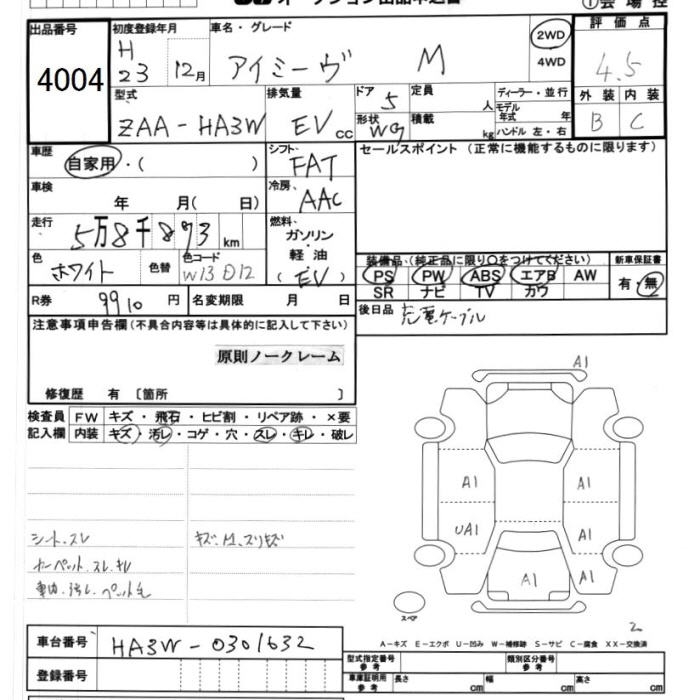 出品番号 初度登録年月 車名・グレード 2WD 評価点
4004 H 23 12月 アイミーヴ M 4WD 4.5
型式 排気量 ドア 5 定員 人 ディーラー・並行 外装 内装
ZAA-HA3W EV cc 形状 WG 積載 kg モデル年式 年 ハンドル 左・右 B C
車歴 自家用・( ) シフト FAT セールスポイント(正常に機能するものに限ります)
車検 年 月( 日) 冷房 AAC
走行 5万8千893km 燃料 ガソリン・軽油 (EV)
色 ホワイト 色替 色コード W13 D12 装備品(純正品に限り○をつけてください) 新車保証書
PS PW ABS エアB AW 有・無
SR ナビ TV カワ
R券 9910円 名変期限 月 日 後日品 充電ケーブル
注意事項申告欄(不具合内容等は具体的に記入して下さい)
原則ノークレーム
修復歴 有 〔箇所 〕
検査員 FW キズ・飛石・ヒビ割・リペア跡・×要
記入欄 内装 キズ・汚レ・コゲ・穴・スレ・キレ・破レ
A1
A1 A1
UA1 A1
A1 A1
シート.スレ キズ.M.スリキズ
カーペット.スレ.キレ
スペア
2
A-キズ E-エクボ U-凹み W-補修跡 S-サビ C-腐食 XX-交換済
車台番号 HA3W-0301632
登録番号 型式指定番号 参考 類別区分番号 参考
車庫証明用 参考 長さ cm 幅 cm 高さ cm